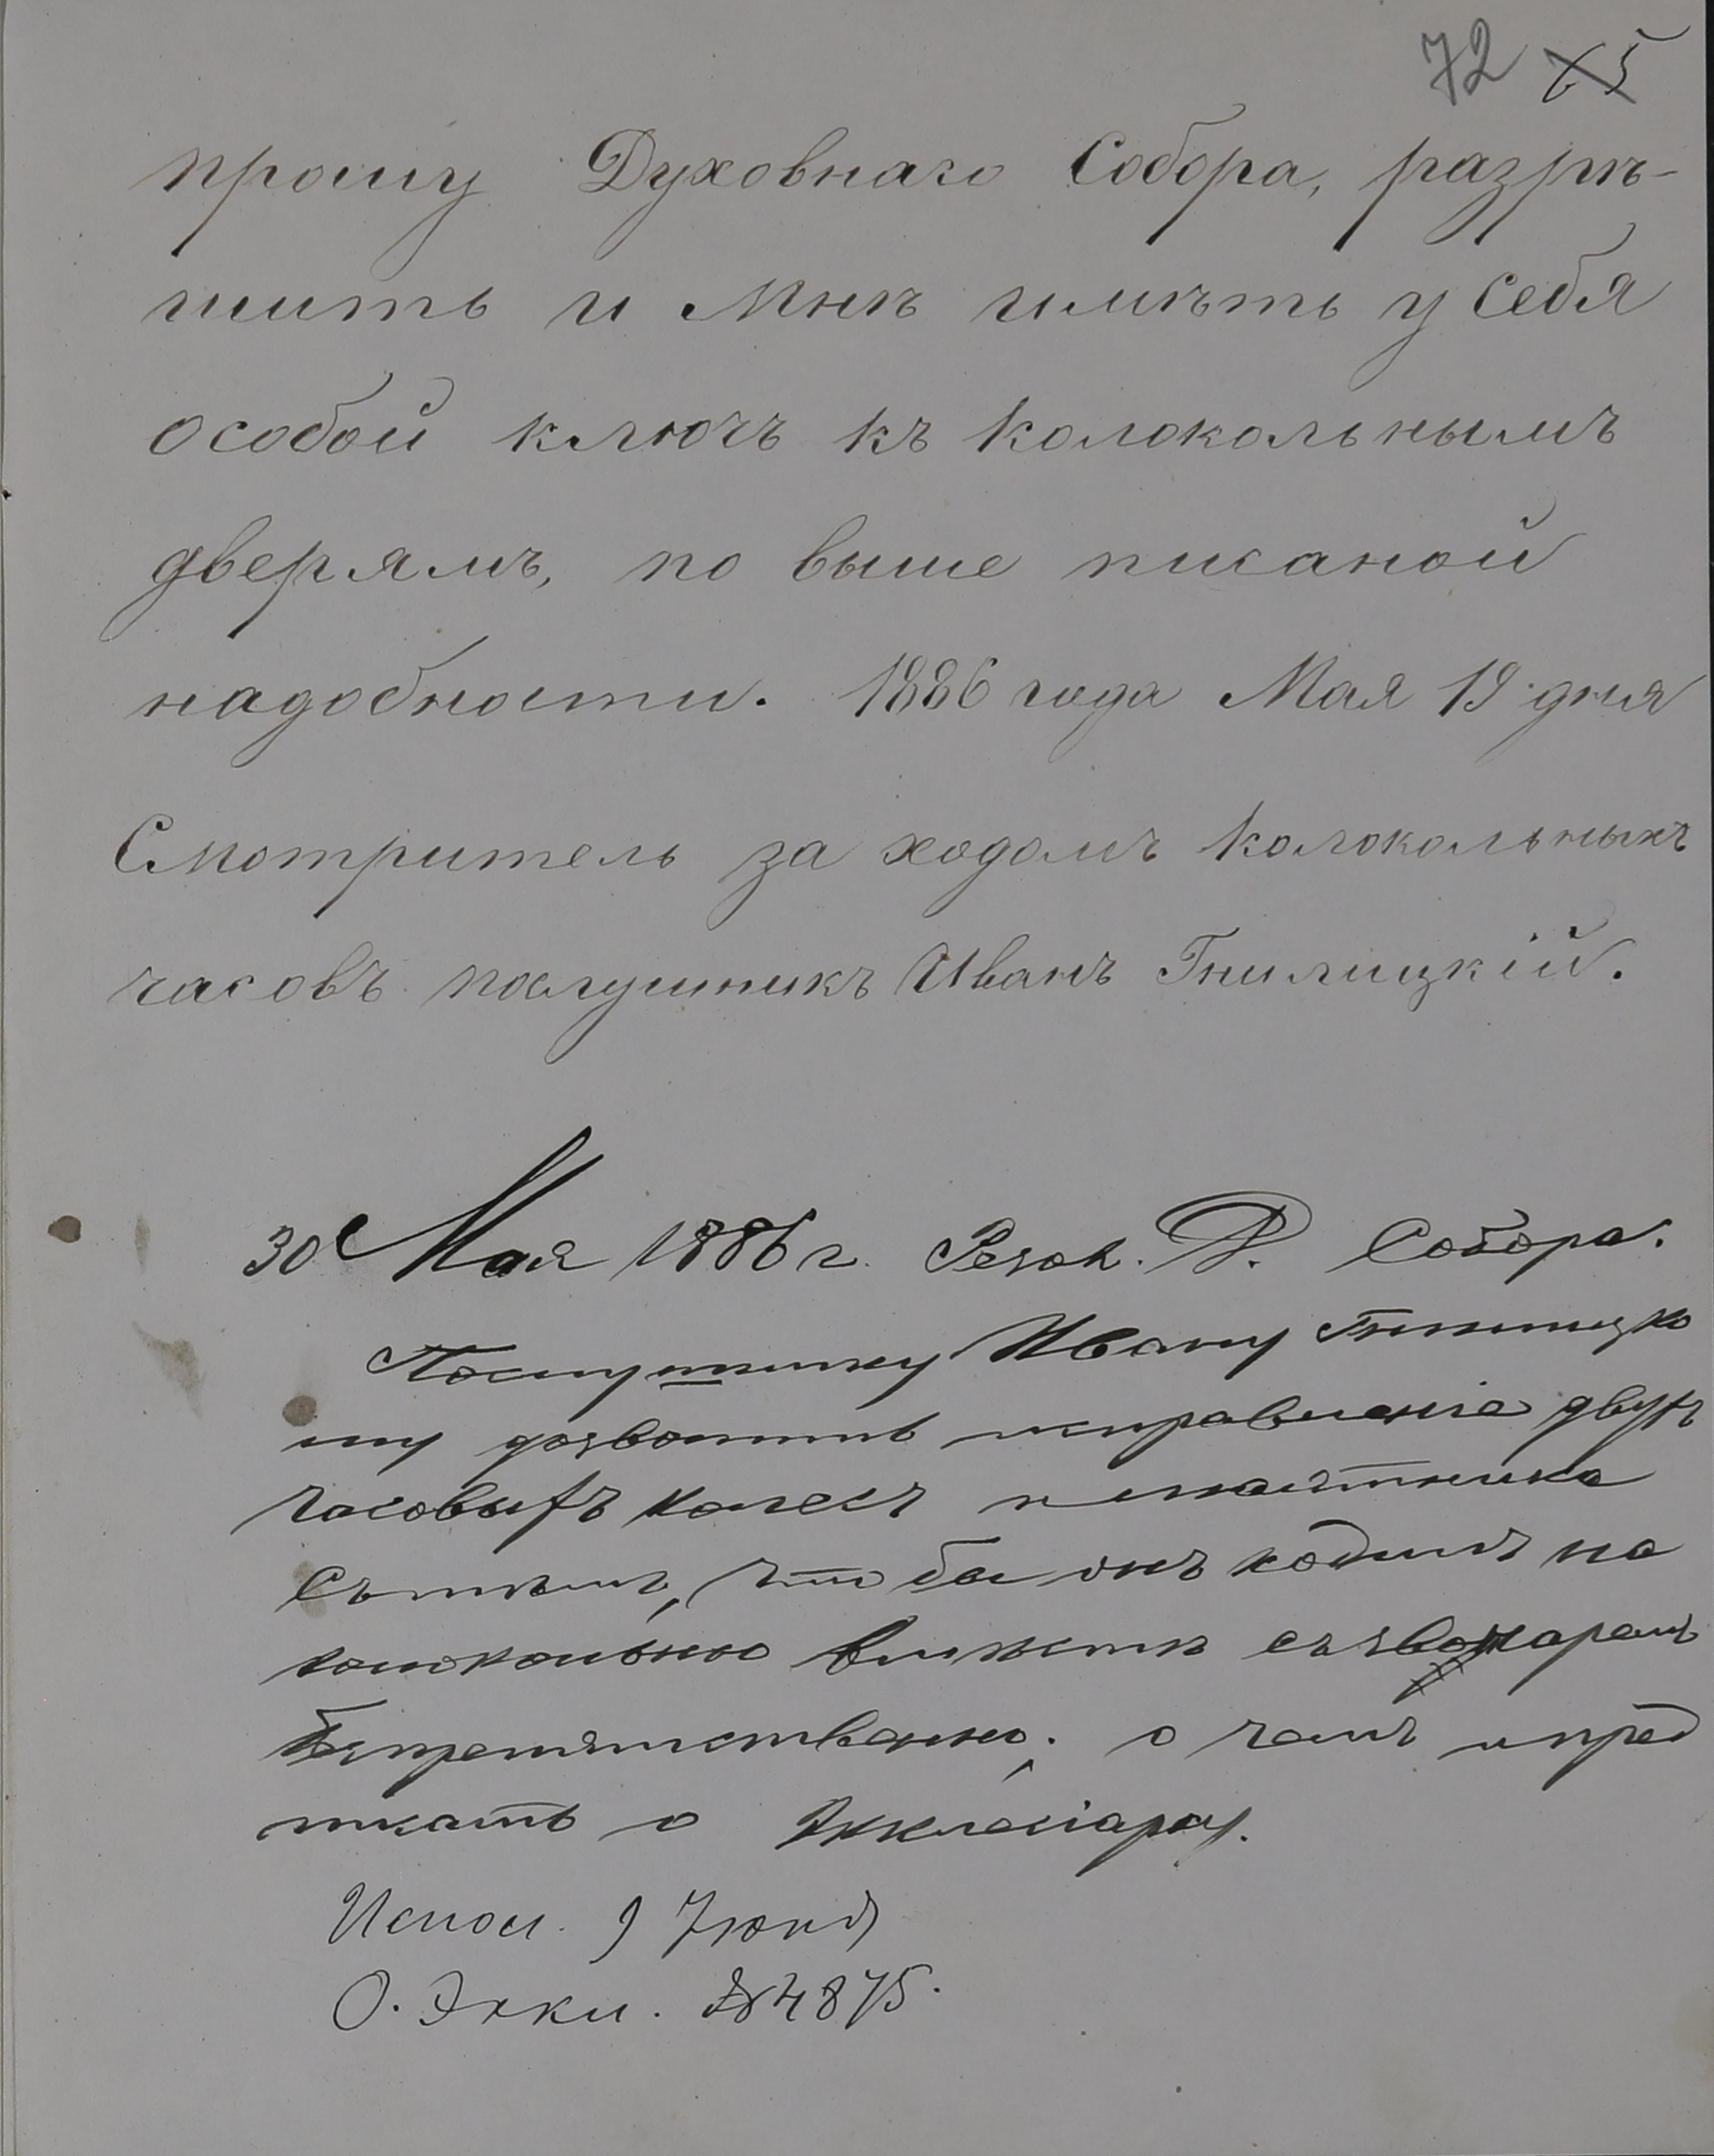 72 65
прошу Духовнаго Собора, разрѣ-
шить и Мнѣ имѣть у Себя
особой ключъ къ Колокольнымъ
дверямъ, по выше писаной
надобности. 1886 года Мая 19 дня
Смотритель за ходомъ Колокольныхъ
часовъ послушникъ Иванъ Гнилицкій.
30 Мая 1886 г. Резол. Д. Собора.
Послушнику Ивану Гнилицко
му дозволить исправленіе двухъ
часовыхъ колесъ и маятника
съ тѣмъ, что бы онъ ходилъ на
колокольню вмѣстѣ съ звонаремъ
безпрепятственно; о чемъ и пред
писать о Экклесіарху.
Испол. 9 Іюня
О. Эккл. № 4875.